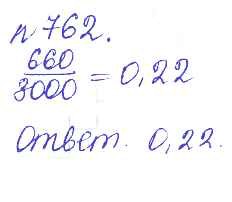 п 762.
660/3000 = 0,22
Ответ. 0,22.